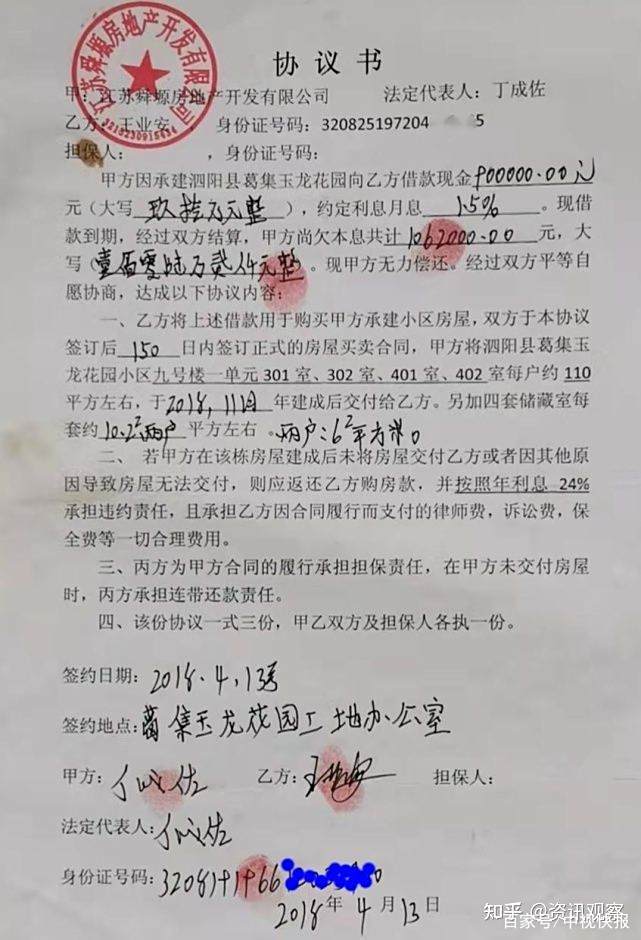 江苏舜塬房地产开发有限公司
3213230915634
协 议 书
甲：江苏舜塬房地产开发有限公司 法定代表人：丁成佐
乙方：王业安 ，身份证号码：320825197204 5
担保人： ，身份证号码：
甲方因承建泗阳县葛集玉龙花园向乙方借款现金900000.00元
元（大写 玖拾万元整 ），约定利息月息 1.5% 。现借
款到期，经过双方结算，甲方尚欠本息共计1062000.00 元，大
写（壹佰零陆万贰仟元整 。现甲方无力偿还。经过双方平等自
愿协商，达成以下协议内容：
一、乙方将上述借款用于购买甲方承建小区房屋，双方于本协议
签订后 150 日内签订正式的房屋买卖合同，甲方将泗阳县葛集玉
龙花园小区九号楼一单元 301 室、302 室、401 室、402 室每户约 110
平方左右，于2018，11月 年建成后交付给乙方。另加四套储藏室每
套约 10.2²两户 平方左右 。两户：6²平方米。
二、 若甲方在该栋房屋建成后未将房屋交付乙方或者因其他原
因导致房屋无法交付，则应返还乙方购房款，并按照年利息 24%
承担违约责任，且承担乙方因合同履行而支付的律师费，诉讼费，保
全费等一切合理费用。
三、丙方为甲方合同的履行承担担保责任，在甲方未交付房屋
时，丙方承担连带还款责任。
四、该份协议一式三份，甲乙双方及担保人各执一份。
签约日期：2018.4.13号
签约地点：葛集玉龙花园工地办公室
甲方：丁成佐 乙方： 担保人：
法定代表人：丁成佐
身份证号码：
2018 年 4 月 13 日
知乎 @资讯观察
百家号/中视快报